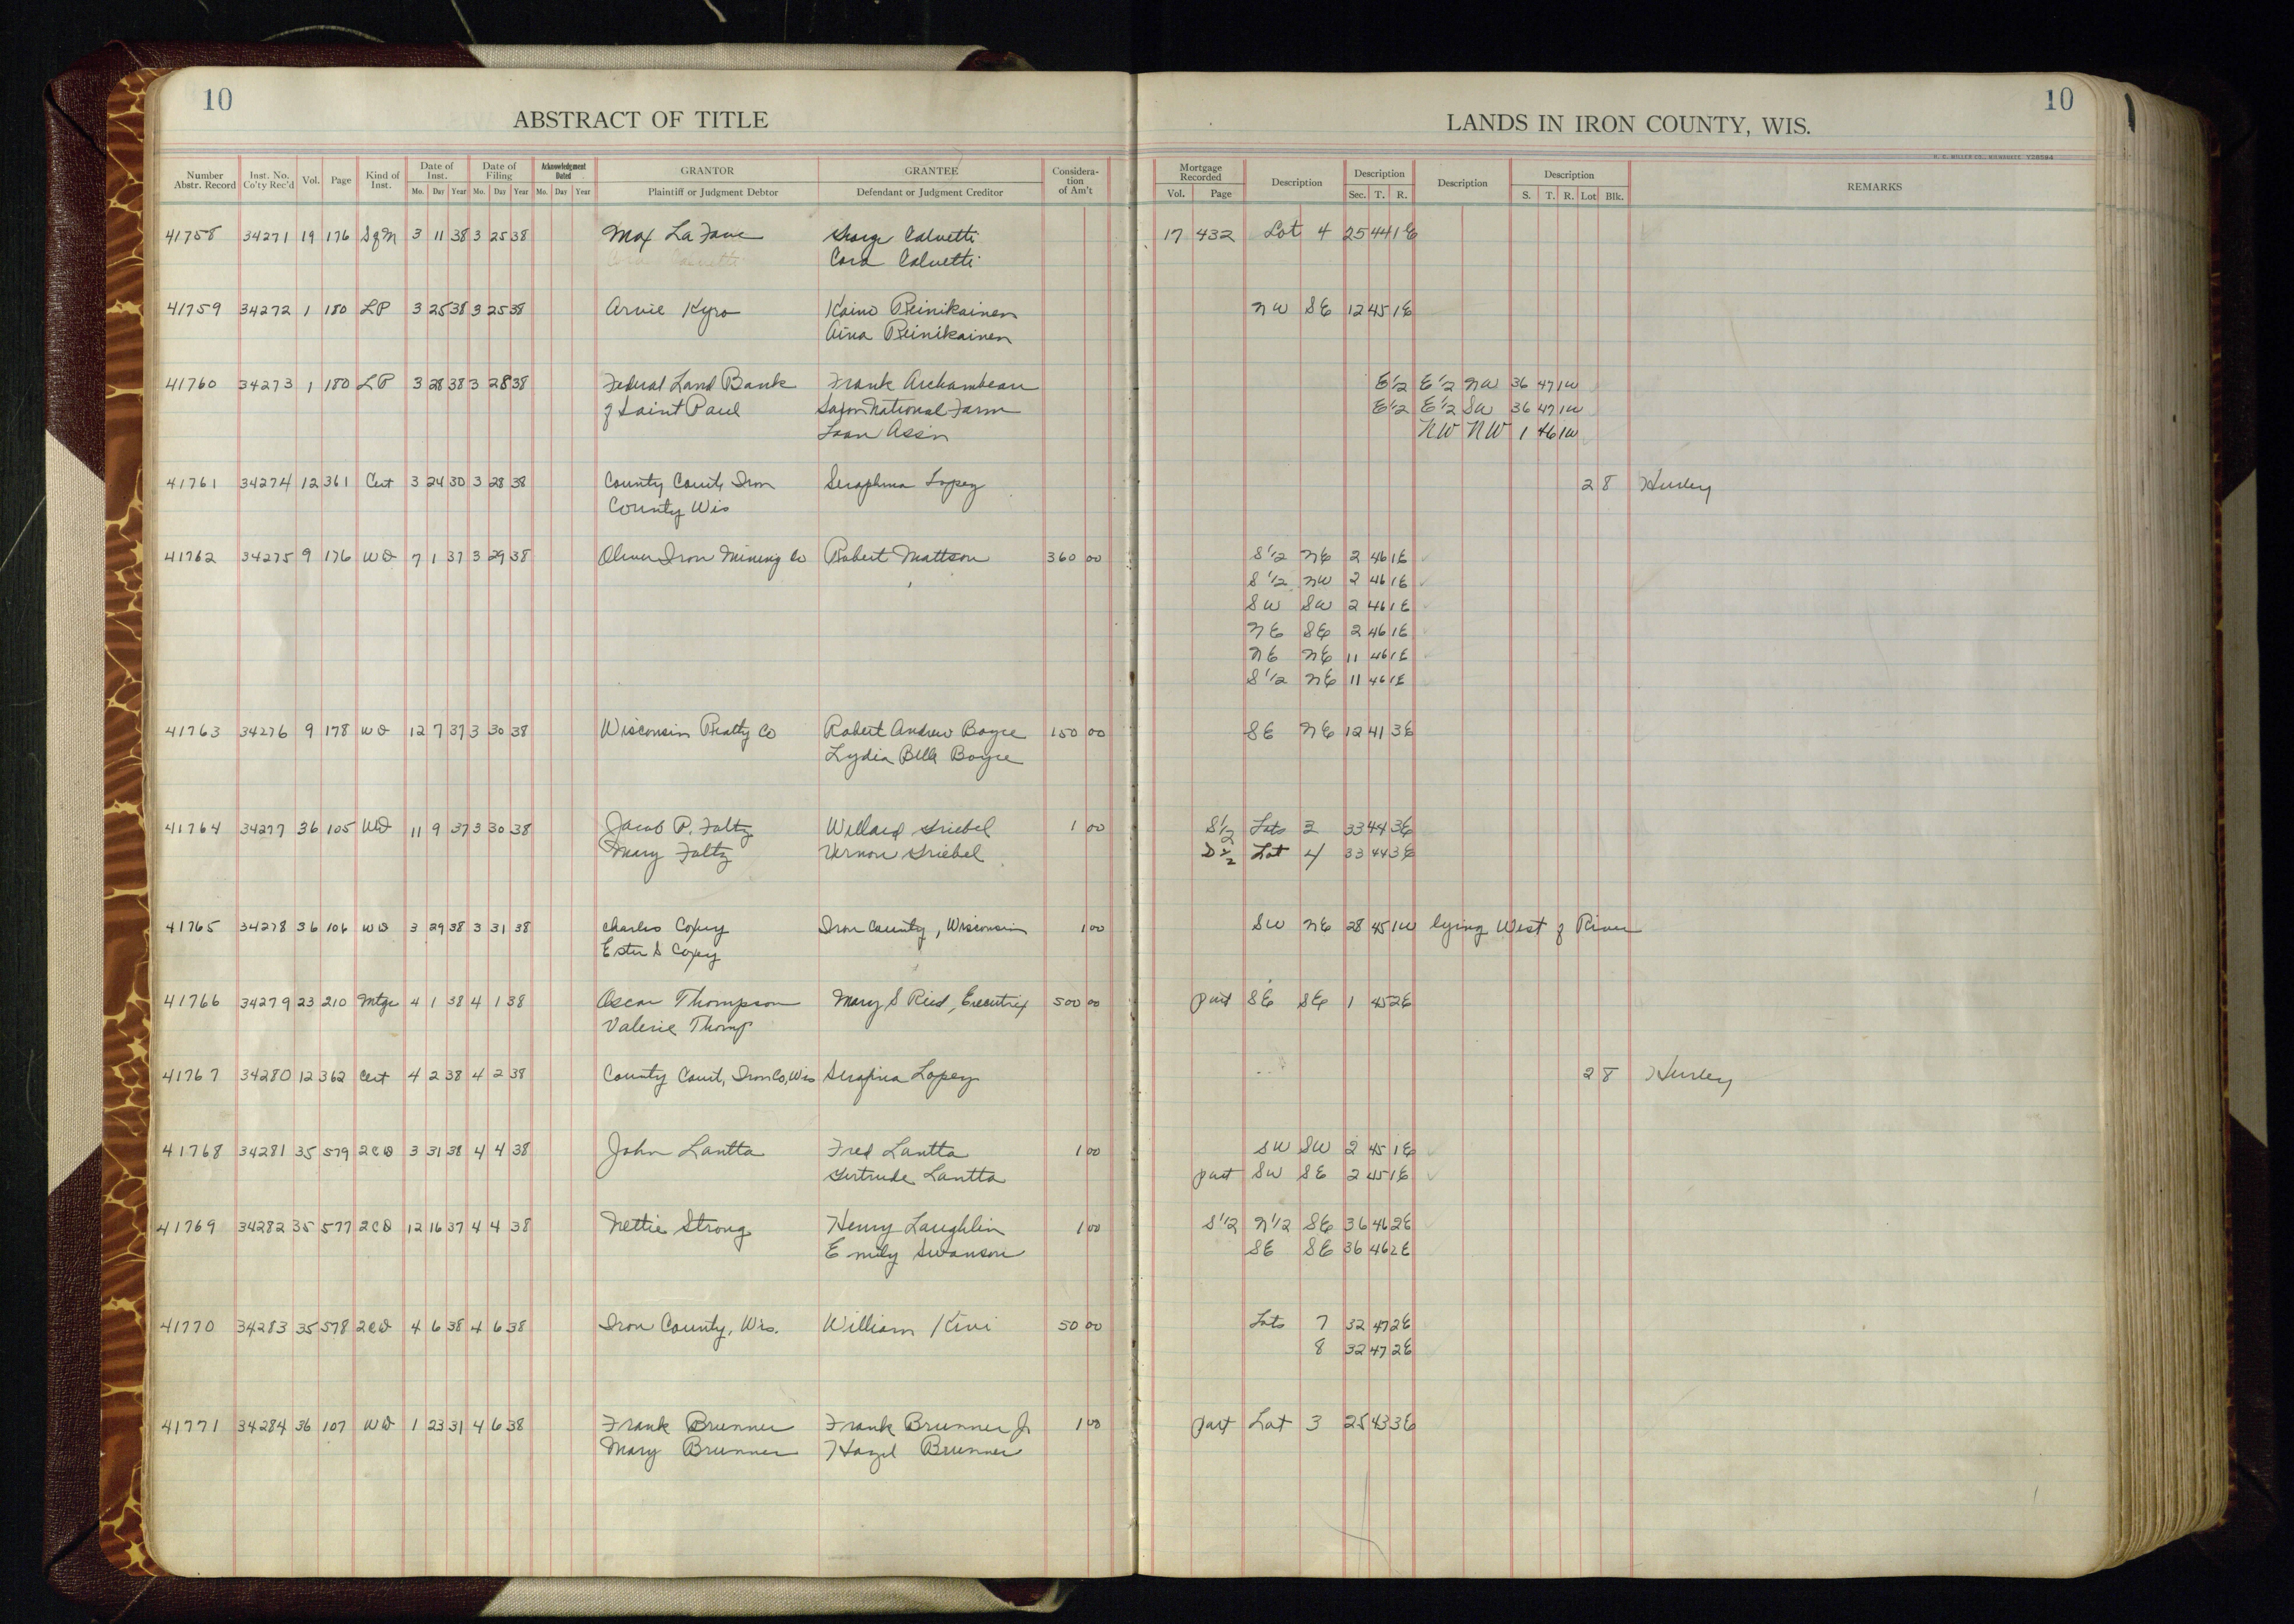 10
ABSTRACT OF TITLE
LANDS IN IRON COUNTY, WIS.
10
Number Abstr. Record | Inst. No. Co'ty Rec'd | Vol. | Page | Kind of Inst. | Date of Inst. Mo. Day Year | Date of Filing Mo. Day Year | Acknowledgment Dated Mo. Day Year | GRANTOR Plaintiff or Judgment Debtor | GRANTEE Defendant or Judgment Creditor | Consideration of Am't | Mortgage Recorded Vol. Page | Description | Description Sec. T. R. | Description | Description S. T. R. Lot Blk. | REMARKS
41758 34271 19 176 SqM 3 11 38 3 25 38 Max La Fave George Calvetti 17 432 Lot 4 25 44 1E
Cora Calvetti
41759 34272 1 180 LP 3 25 38 3 25 38 Arvie Kyro Kaino Reinikainen NW SE 12 45 1E
Aina Reinikainen
41760 34273 1 180 LP 3 28 38 3 28 38 Federal Land Bank Frank Archambeau E1/2 E1/2 NW 36 47 1W
of Saint Paul Saxon National Farm E1/2 E1/2 SW 36 47 1W
Loan Ass'n NW NW 1 46 1W
41761 34274 12 361 Cert 3 24 30 3 28 38 County Court, Iron Seraphina Lopez 2 8 Hurley
County Wis
41762 34275 9 176 WD 7 1 37 3 29 38 Oliver Iron Mining Co Robert Mattson 360 00 S1/2 NE 2 46 1E
S1/2 NW 2 46 1E
SW SW 2 46 1E
NE SE 2 46 1E
NE NE 11 46 1E
S1/2 NE 11 46 1E
41763 34276 9 178 WD 12 7 37 3 30 38 Wisconsin Realty Co Robert Andrew Boyce 150 00 SE NE 12 41 3E
Lydia Belle Boyce
41764 34277 36 105 WD 11 9 37 3 30 38 Jacob P. Foltz Willard Griebel 1 00 S1/2 Lots 3 33 44 3E
Mary Foltz Vernon Griebel Lot 4 33 44 3E
41765 34278 36 106 WD 3 29 38 3 31 38 Charles Coxey Iron County, Wisconsin 1 00 SW NE 28 45 1W lying West of River
Ester S Coxey
41766 34279 23 210 Mtge 4 1 38 4 1 38 Oscar Thompson Mary S Reid, Executrix 500 00 part SE SE 1 45 2E
Valerie Thomp
41767 34280 12 362 Cert 4 2 38 4 2 38 County Court, Iron Co, Wis Serafina Lopez 2 8 Hurley
41768 34281 35 579 2CD 3 31 38 4 4 38 John Lantta Fred Lantta 1 00 SW SW 2 45 1E
Gertrude Lantta part SW SE 2 45 1E
41769 34282 35 577 2CD 12 16 37 4 4 38 Nettie Strong Henry Laughlin 1 00 S1/2 N1/2 SE 36 46 2E
Emily Swanson SE SE 36 46 2E
41770 34283 35 578 2CD 4 6 38 4 6 38 Iron County, Wis. William Kivi 50 00 Lots 7 32 47 2E
8 32 47 2E
41771 34284 36 107 WD 1 23 31 4 6 38 Frank Brunner Frank Brunner Jr 1 00 part Lot 3 25 43 3E
Mary Brunner Hazel Brunner